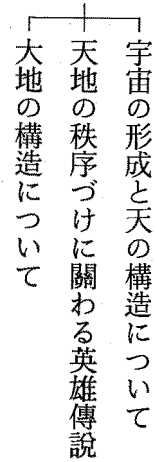 宇宙の形成と天の構造について
天地の秩序づけに關わる英雄傳說
大地の構造について